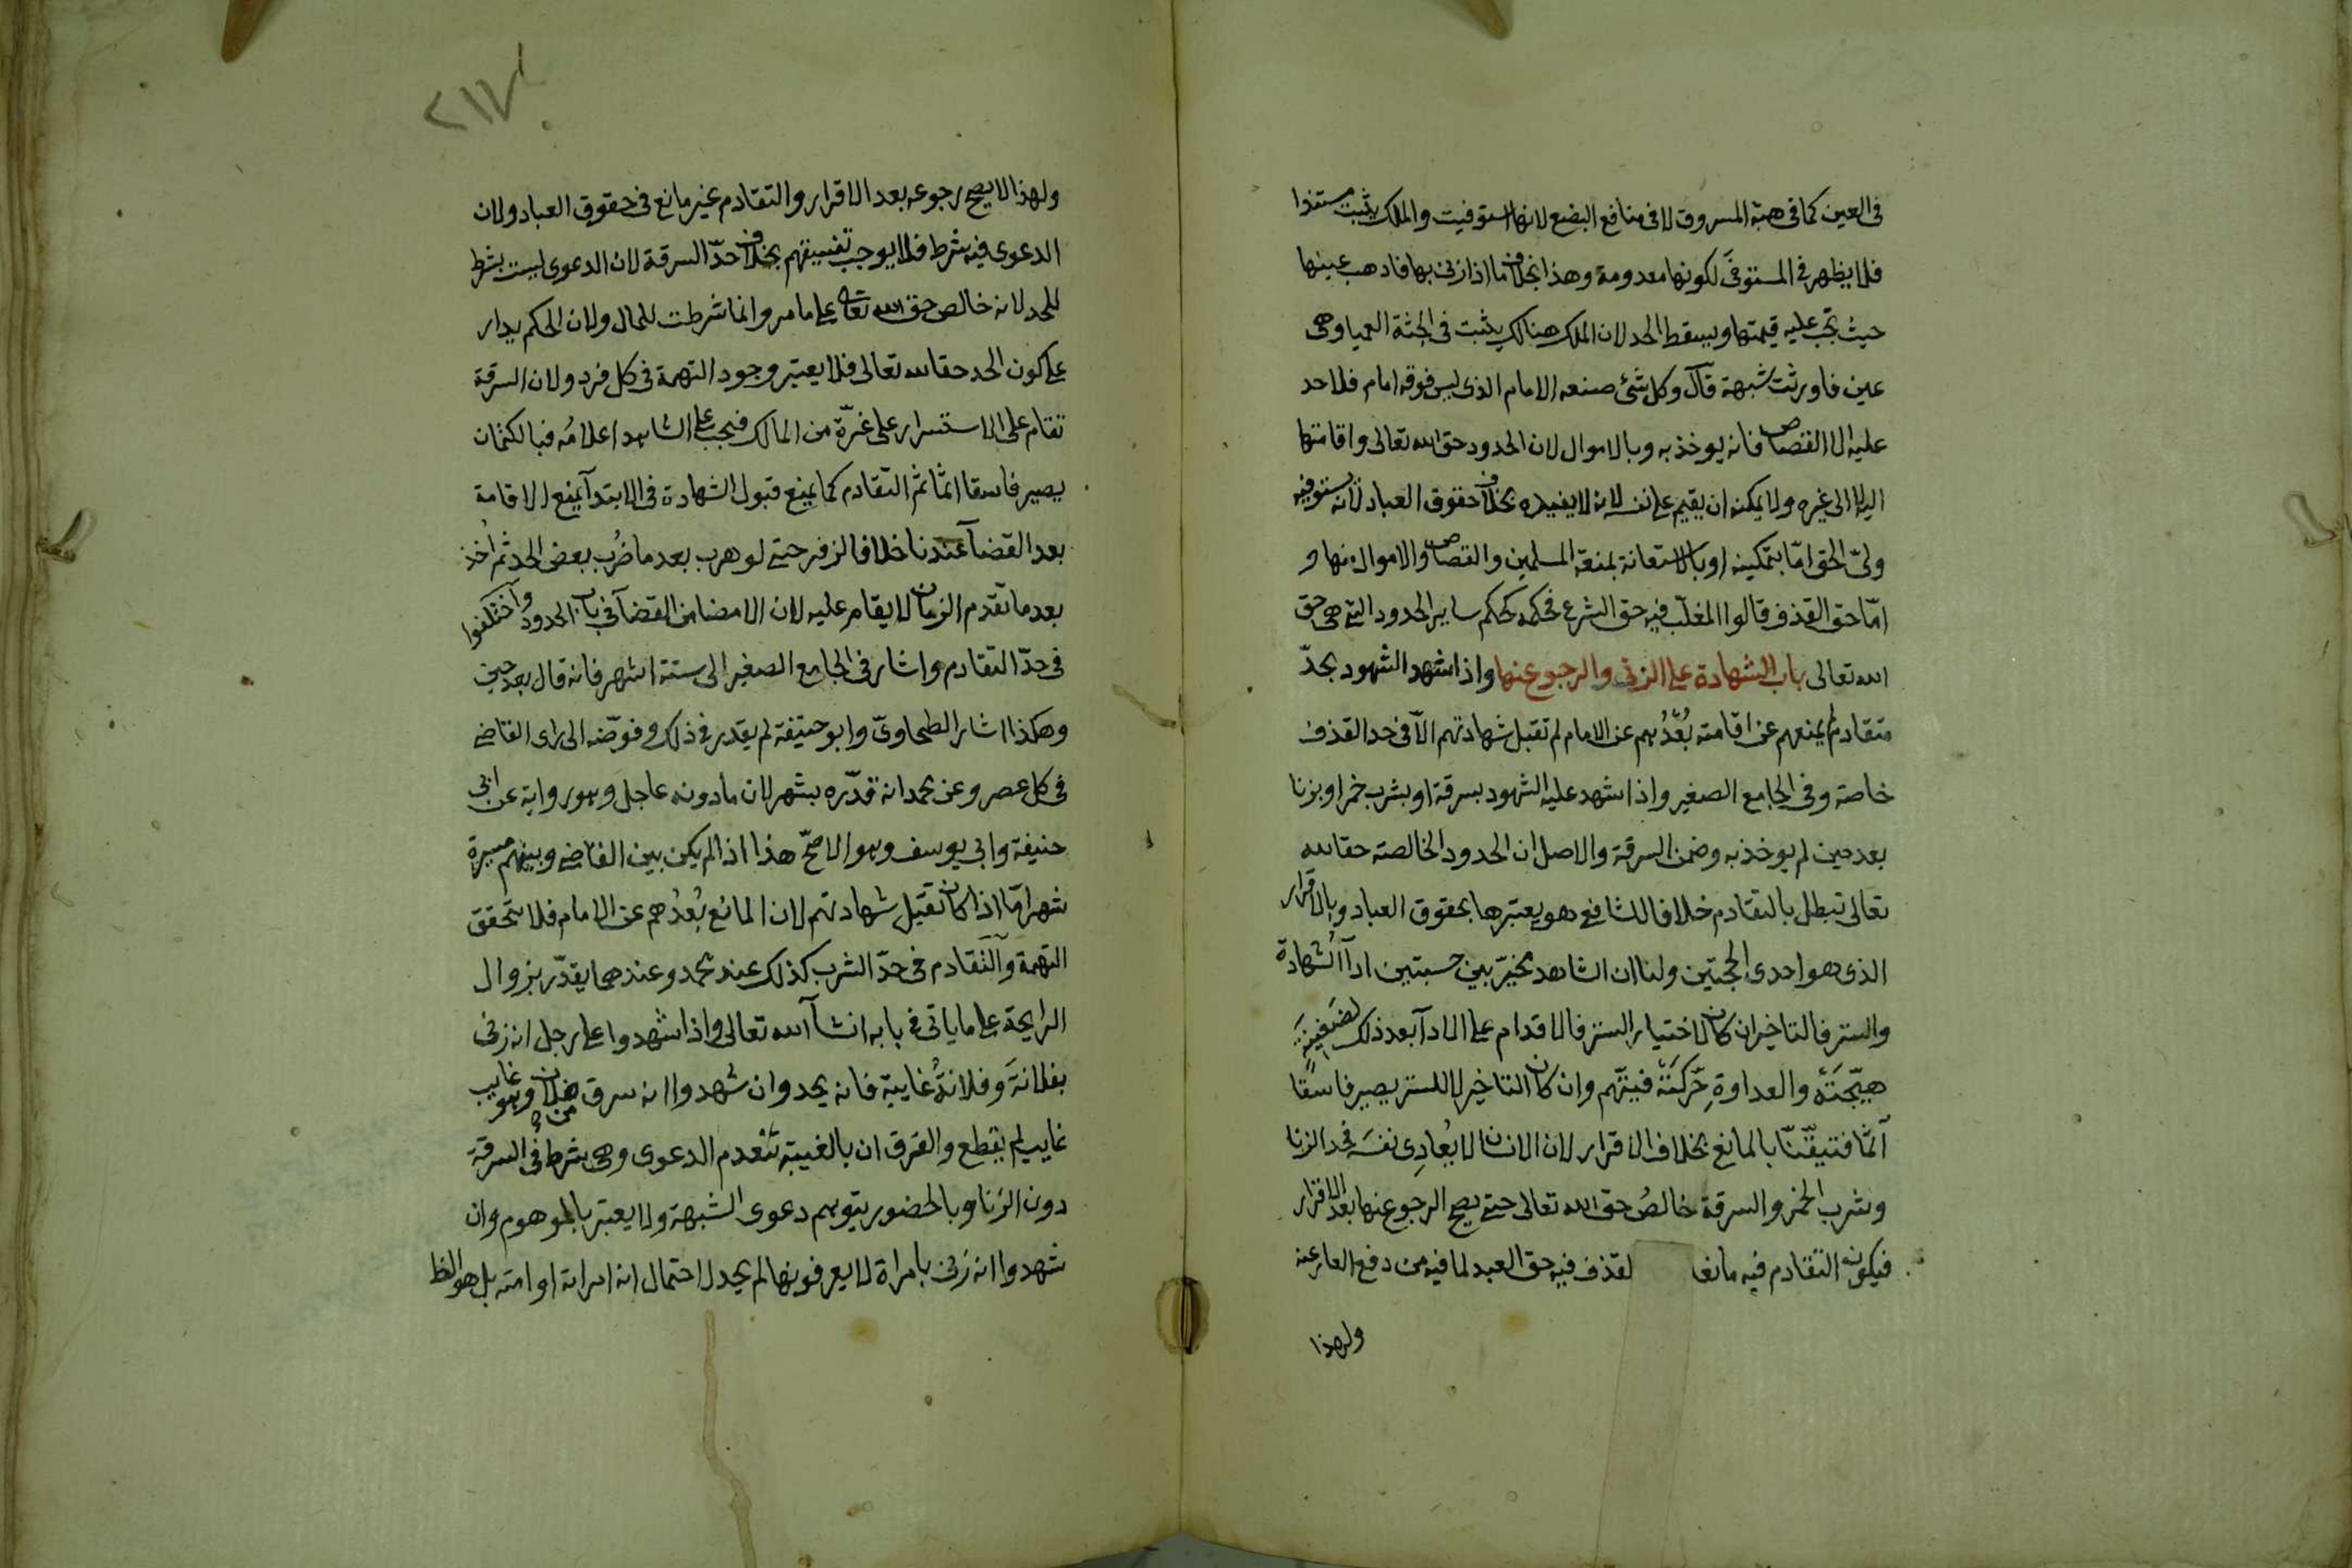 فى العين كما فى هبة المسروق لا فى منافع البضع لانها استوفيت والملك يثبت مستندا
فلا يظهر فى المستوفى لكونها معدومة وهذا بخلاف ما اذا زنى بها فاذهب عينها
حيث تجب عليه قيمتها ويسقط الحد لان الملك هنالك يثبت فى الجثة العميا وهى
عين فاورثت شبهة قال وكل شئ صنعه الامام الذى ليس فوقه امام فلا حد
عليه الا القصاص فانه يوخذ به وبالاموال لان الحدود حق الله تعالى واقامتها
اليه لا الى غيره ولا يمكنه ان يقيم على نفسه لانه لا يفيده بخلاف حقوق العباد لانه يستوفيه
ولىّ الحق امّا بتمكينه او بالاستعانة بمنعة المسلمين والقصاص والاموال منها و
امّا حق القذف قالوا المغلّب فيه حق الشرع فحكمه كحكم ساير الحدود التى هى حق
الله تعالى باب الشهادة على الزنى والرجوع عنها واذا شهد الشهود بحدّ
متقادم لم يمنعهم عن اقامته بُعْدُهم عن الامام لم تقبل شهادتهم الّا فى حد القذف
خاصة وفى الجامع الصغير واذا شهد عليه الشهود بسرقة او بشرب خمر او بزنا
بعد حين لم يوخذ به وضمن السرقة والاصل ان الحدود الخالصة حقا لله
تعالى تبطل بالتقادم خلافا للشافعى هو يعتبرها بحقوق العباد وبالاقرار
الذى هو احدى الحجتين ولنا ان الشاهد مخيّر بين حسبتين ادآ الشهادة
والستر فالتاخير ان كان لاختيار الستر فالاقدام على الادآ بعد ذلك لضغينة
هيّجَتْهُ والعداوةِ حرّكَتْهُ فيتّهم وان كان التاخير لا للستر يصير فاسقا
آثمًا فتيقّنّا بالمانع بخلاف الاقرار لان الانسان لا يُعادِى نفسَه فحد الزنا
وشرب الخمر والسرقة خالصُ حق الله تعالى حتى يصح الرجوع عنها بعد الاقرار
فيكون التقادم فيه مانعا لقذف فيه حق العبد لما فيه من دفع العار عنه
ولهذا
٢١٧
ولهذا لا يصحّ رجوعه بعد الاقرار والتقادم غير مانع فى حقوق العباد ولان
الدعوى فيه شرط فلا يوجب تفسيقهم بخلاف حدّ السرقة لان الدعوى ليست بشرط
للحد لانه خالص حق الله تعالى على ما مر وانما شرطت للمال ولان الحكم يدار
على كون الحد حقا لله تعالى فلا يعتبر وجود التهمة فى كل فرد ولان السرقة
تقام على الاستسرار على غرّة من المالك فيجب على الشاهد اعلامُه فبالكتمان
يصير فاسقا اثما ثم التقادم كما يمنع قبول الشهادة فى الابتدآ يمنع الاقامة
بعد القضآ عندنا خلافا لزفر حتى لو هرب بعد ما ضُرب بعض الحد ثم اُخذ
بعد ما تقدم الزمان لا يقام عليه لان الامضا من القضآ فى باب الحدود واختلفوا
فى حدّ التقادم واشار فى الجامع الصغير الى ستة اشهر فانه قال بعد حين
وهكذا اشار الطحاوىّ وابو حنيفة لم يقدر فى ذلك وفوّضه الى راى القاضى
فى كل عصر وعن محمد انه قدّره بشهر لان ما دونه عاجل وهو رواية عن ابى
حنيفة وابى يوسف وهو الاصحّ هذا اذا لم يكن بين القاضى وبينهم مسيرة
شهر امّا اذا كان تقبل شهادتهم لان المانع بُعْدُهم عن الامام فلا تتحقق
التهمة والتقادم فى حدّ الشرب كذلك عند محمد وعندهما يقدّر بزوال
الرايحة على ما ياتى فى بابه انشآ الله تعالى واذا شهدوا على رجل انه زنى
بفلانةَ وفلانةُ غايبة فانه يحد وان شهدوا انه سرق من فلان وهو غايب
غايب لم يقطع والفرق ان بالغيبة تنعدم الدعوى وهى شرط فى السرقة
دون الزنا وبالحضور يتوهم دعوى الشبهة ولا يعتبر بالموهوم وان
شهدوا انه زنى بامراة لا يعرفونها لم يحد لاحتمال انه امراته او امته بل هو الظا